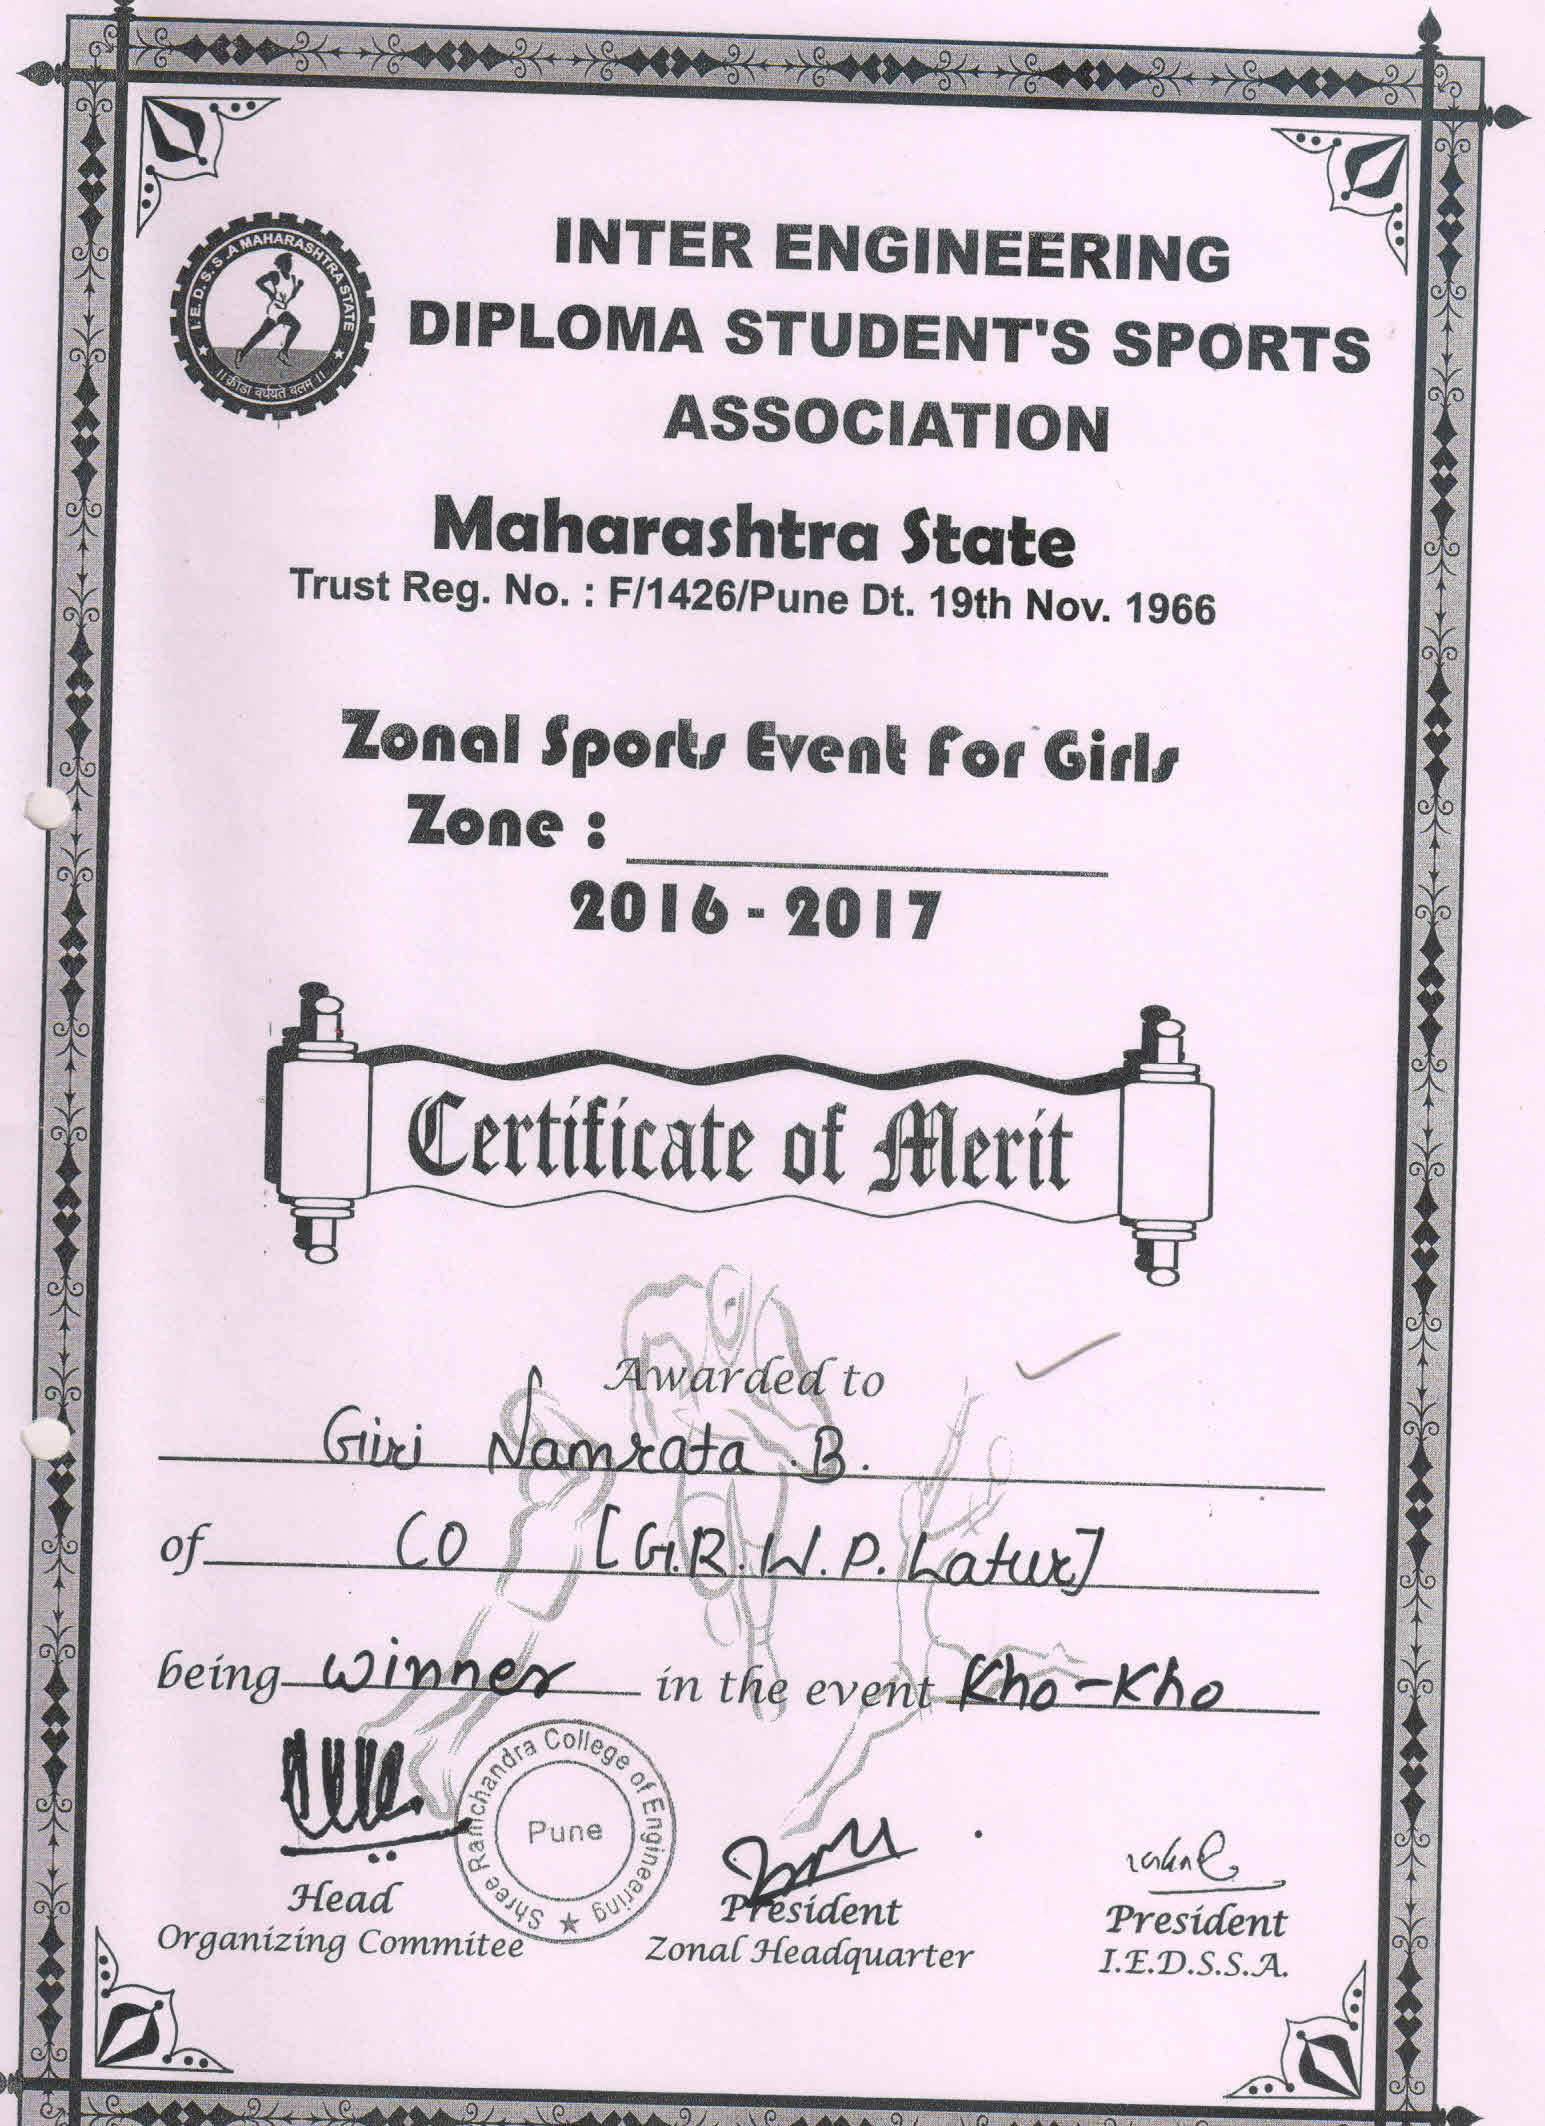 INTER ENGINEERING
DIPLOMA STUDENT'S SPORTS
ASSOCIATION
I.E.D.S.S.A MAHARASHTRA STATE
।। क्रीडा वर्धयते बलम ।।
Maharashtra State
Trust Reg. No. : F/1426/Pune Dt. 19th Nov. 1966
Zonal Sports Event For Girls
Zone :
2016 - 2017
Certificate of Merit
Awarded to
Giri Namrata .B.
of CO [G.R.W.P. Latur]
being winner in the event Kho-Kho
Shree Ramchandra College of Engineering
Pune
Head
Organizing Commitee
President
Zonal Headquarter
President
I.E.D.S.S.A.